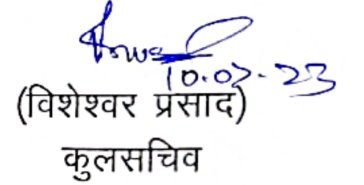 10.07.23
(विशेश्वर प्रसाद)
कुलसचिव